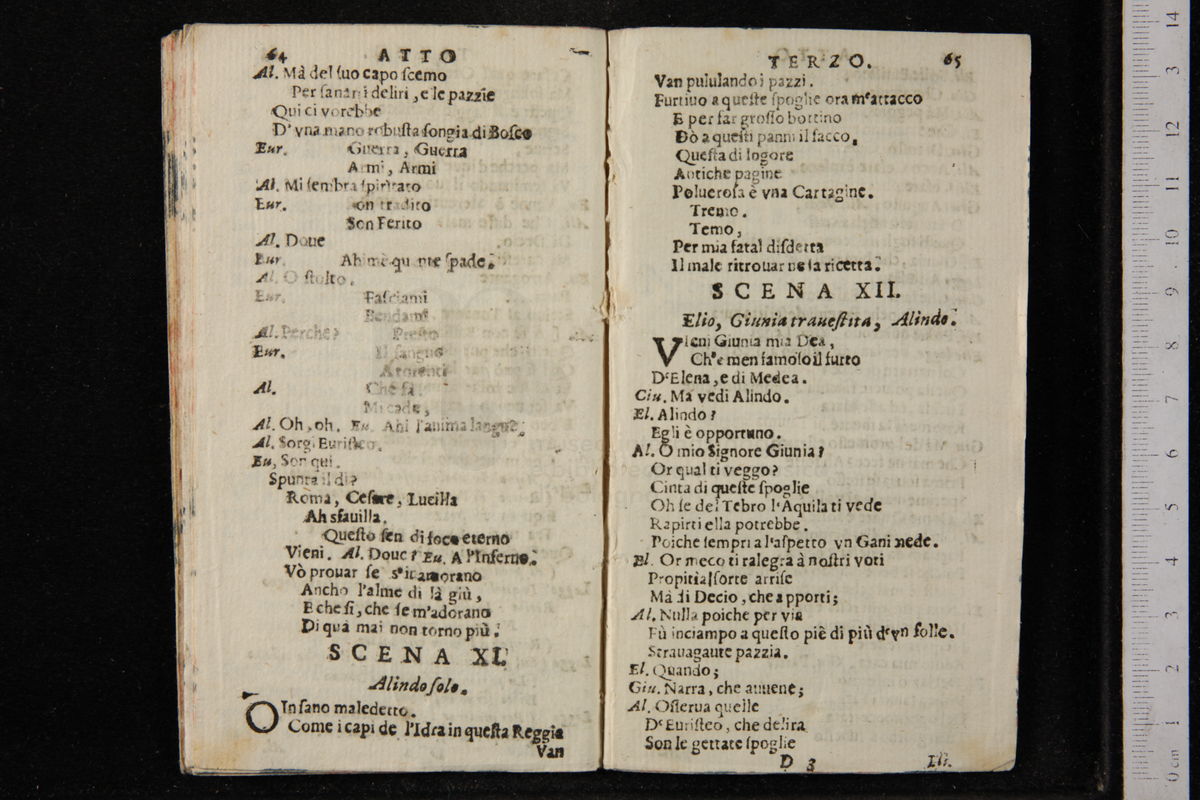 64 ATTO
Al. Mà del ſuo capo ſcemo
Per ſanar i deliri, e le pazzie
Qui ci vorebbe
D'vna mano robuſta ſongia di Boſco
Eur. Guerra, Guerra
Armi, Armi
Al. Mi ſembra ſpiritato
Eur. on tradito
Son Ferito
Al. Doue
Eur. Ahimè quante ſpade.
Al. O ſtolto.
Eur. Faſciami
Bendami
Al. Perche? Preſto
Eur. Il ſangue
A torrenti
Al. Che fà.
Mi cade,
Al. Oh, oh. Eu. Ahi l'anima langue.
Al. Sorgi Euriſteo.
Eu, Son qui.
Spunta il dì?
Roma, Ceſare, Lucilla
Ah sfauilla.
Queſto ſen di foco eterno
Vieni. Al. Doue? Eu. A l'Inferno.
Vò prouar ſe s'inamorano
Ancho l'alme di là giù,
E che ſi, che ſe m'adorano
Di quà mai non torno più.
SCENA XI.
Alindo ſolo.
O Inſano maledetto.
Come i capi de l'Idra in queſta Reggia
Van
TERZO. 65
Van pululando i pazzi.
Furtiuo a queſte ſpoglie ora m'attacco
E per far groſſo bottino
Dò a queſti panni il ſacco.
Queſta di logore
Antiche pagine
Polueroſa è vna Cartagine.
Tremo.
Temo,
Per mia fatal diſdetta
Il male ritrouar ne la ricetta.
SCENA XII.
Elio, Giunia traueſtita, Alindo.
VIeni Giunia mia Dea,
Ch'è men famoſo il furto
D'Elena, e di Medea.
Giu. Mà vedi Alindo.
El. Alindo?
Egli è opportuno.
Al. O mio Signore Giunia?
Or qual ti veggo?
Cinta di queſte ſpoglie
Oh ſe del Tebro l'Aquila ti vede
Rapirti ella potrebbe.
Poiche ſempri a l'aſpetto vn Ganimede.
El. Or meco ti ralegra à noſtri voti
Propitia ſorte arriſe
Mà di Decio, che apporti;
Al. Nulla poiche per via
Fù inciampo a queſto piè di più d'vn folle.
Strauagante pazzia.
El. Quando;
Giu. Narra, che auuene;
Al. Oſſerua quelle
D'Euriſteo, che delira
Son le gettate ſpoglie
D 3 Ili.